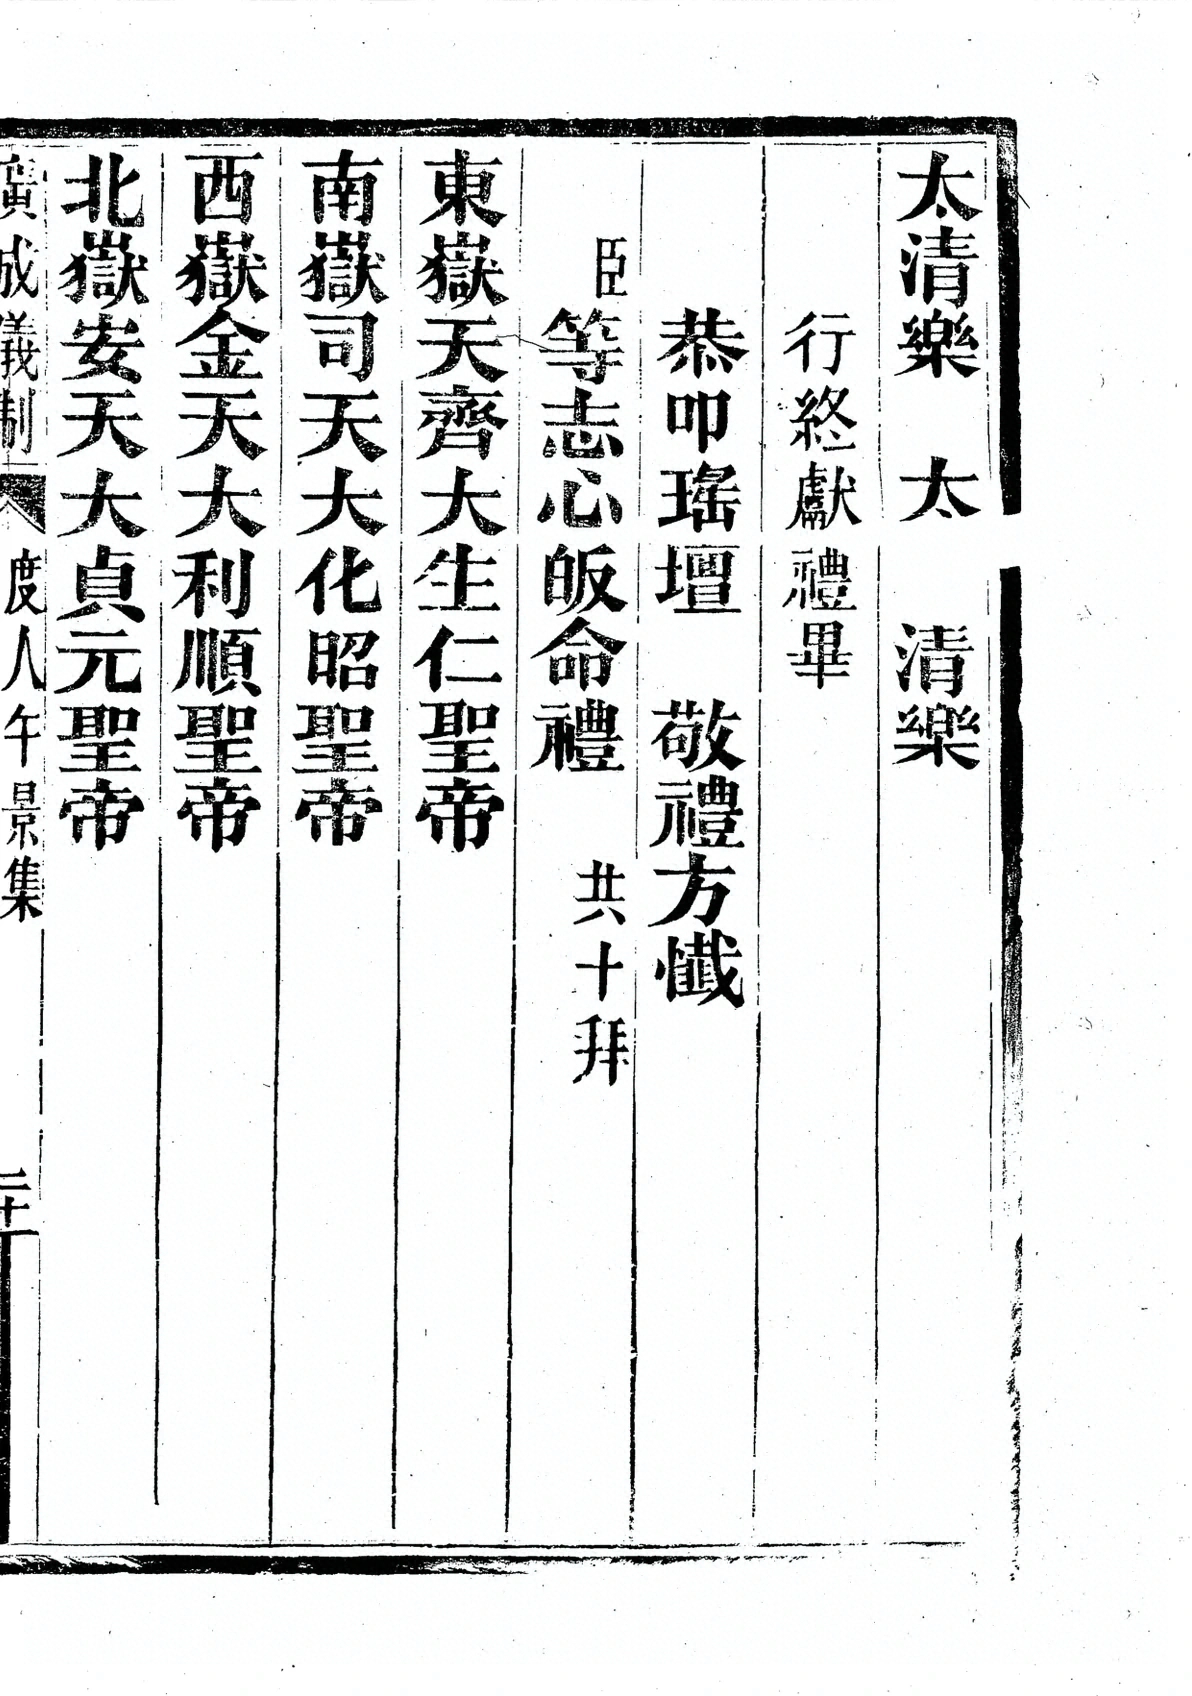 太清樂　太　清樂
行終獻禮畢
恭叩瑤壇　敬禮方懺
臣等志心皈命禮　共十拜
東嶽天齊大生仁聖帝
南嶽司天大化昭聖帝
西嶽金天大利順聖帝
北嶽安天大貞元聖帝
廣成儀制　度人午景集　二十